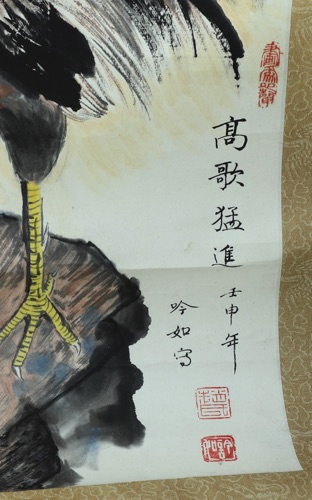 高歌猛進
壬申年
吟如寫